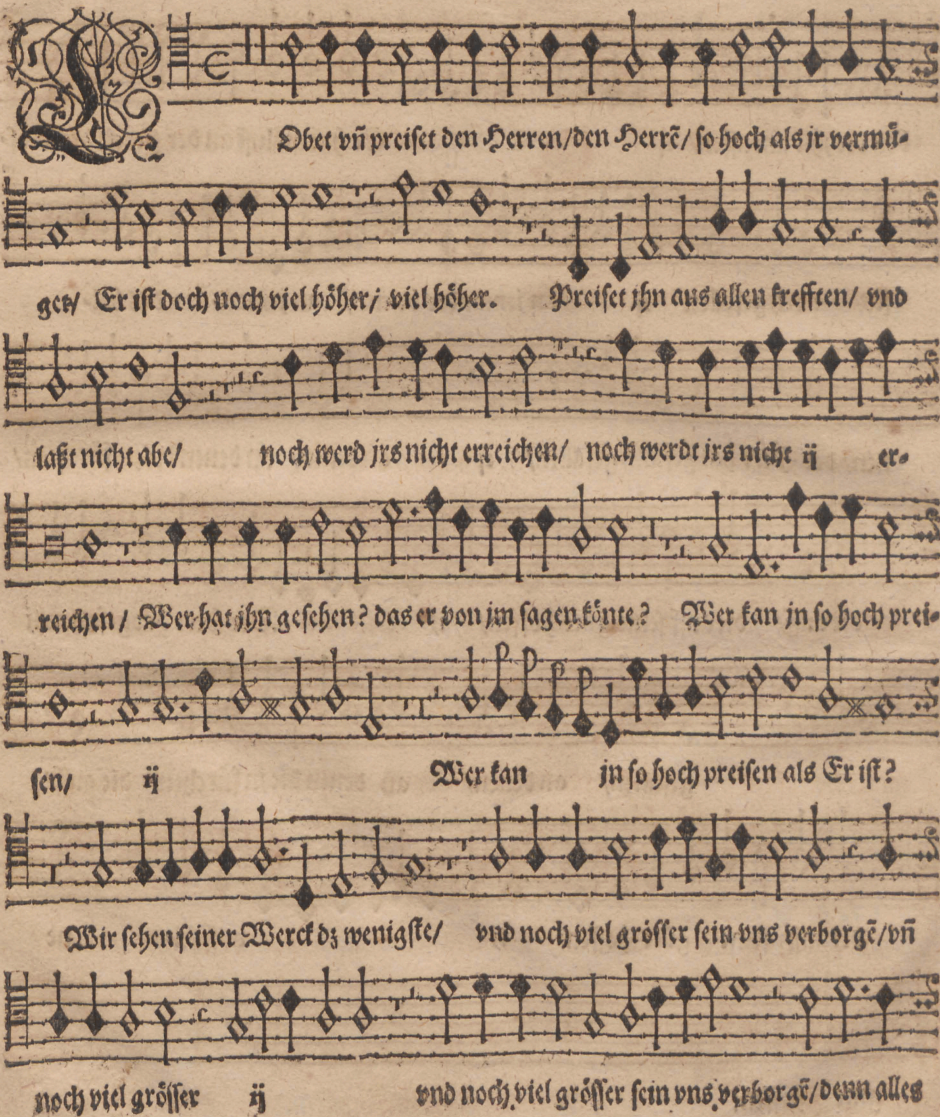 LObet vñ preiset den Herren/den Herrẽ/ so hoch als jr vermü-
get/ Er ist doch noch viel höher/ viel höher. Preiset jhn aus allen krefften/ vnd
laßt nicht abe/ noch werd jrs nicht erreichen/ noch werdt jrs nicht ij er-
reichen / Wer hat jhn gesehen? das er von jm sagen könte? Wer kan jn so hoch prei-
sen/ ij Wer kan jn so hoch preisen als Er ist?
Wir sehen seiner Werck dz wenigste/ vnd noch viel grösser sein vns verborgẽ/vñ
noch viel grösser ij vnd noch viel grösser sein vns verborgẽ/denn alles